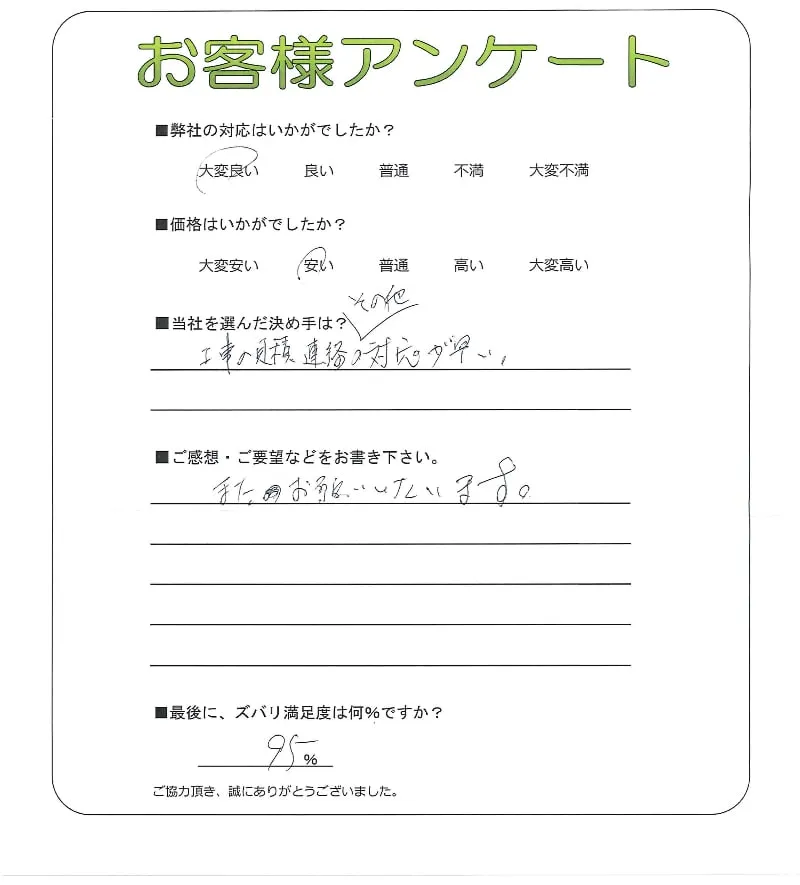 お客様アンケート
■弊社の対応はいかがでしたか？
大変良い 良い 普通 不満 大変不満
■価格はいかがでしたか？
大変安い 安い 普通 高い 大変高い
その他
■当社を選んだ決め手は？
工事の見積 連絡の対応が早い。
■ご感想・ご要望などをお書き下さい。
また お願いしたいます。
■最後に、ズバリ満足度は何％ですか？
95％
ご協力頂き、誠にありがとうございました。